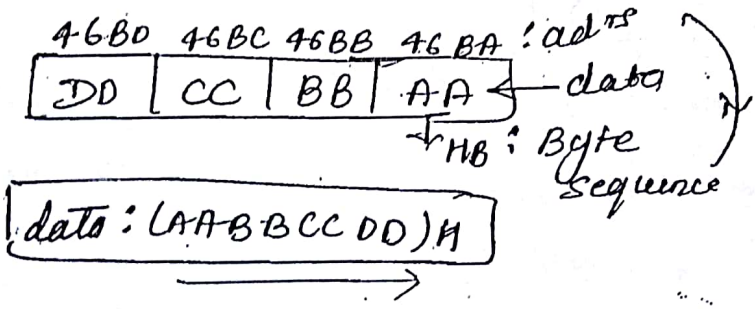 46BD 46BC 46BB 46BA : adrs
DD CC BB AA ← data
HB : Byte
sequence
data : (AABBCCDD)H